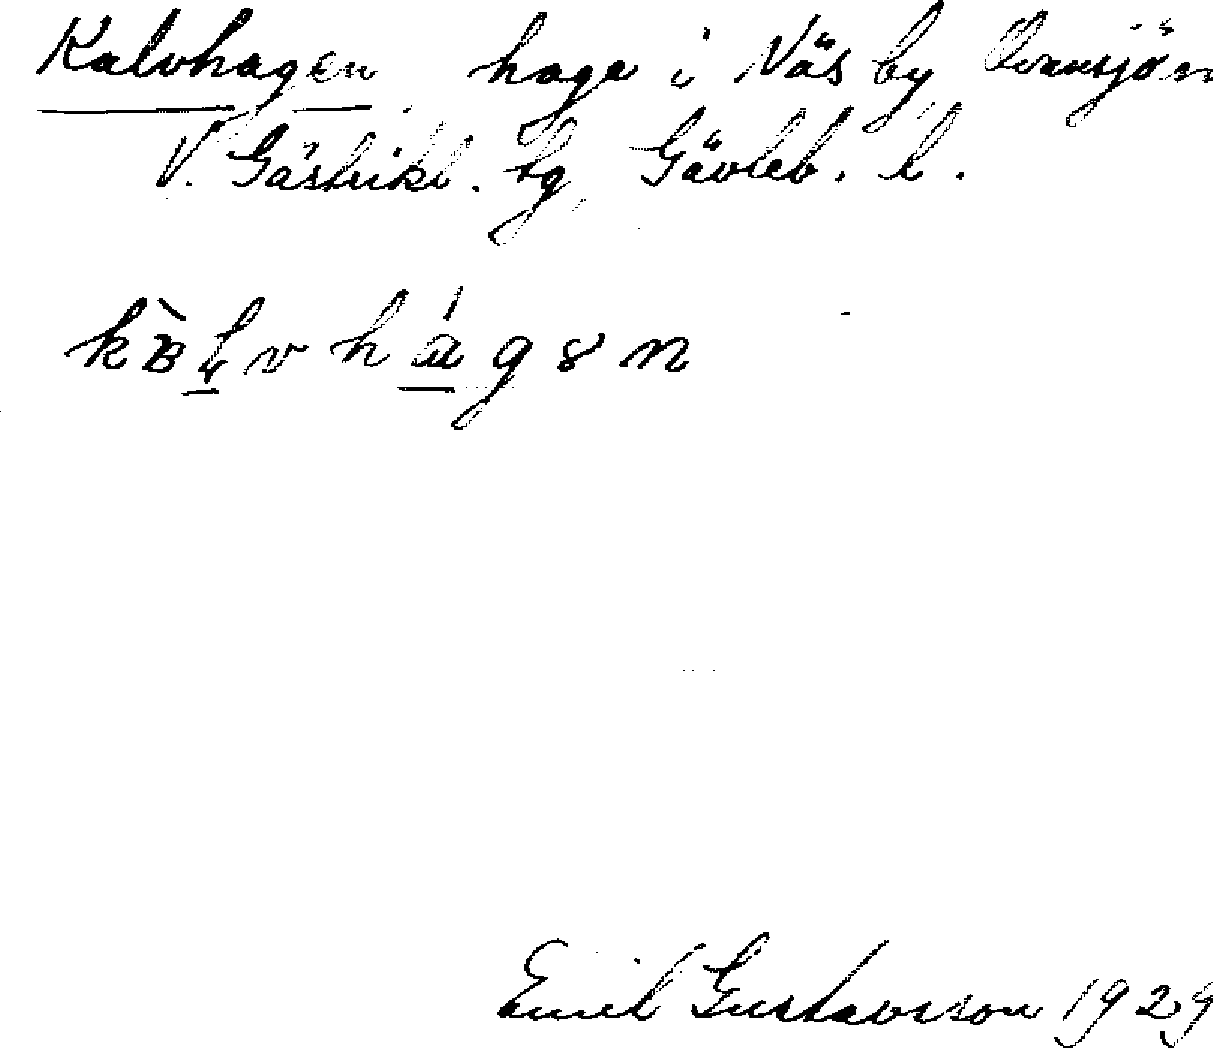 Kalvhagen hage i Näs by Ovansjö sn
V. Gästrikl. tg Gävleb. l.
kàlvhágən
Emil Gustavsson 1929